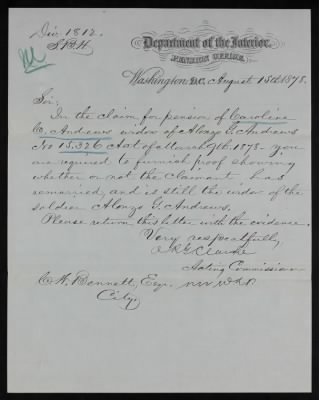 Div 1812.
S.B.H.
Department of the Interior,
PENSION OFFICE,
Washington D.C. August 15th 1878.
Sir,
In the claim for pension of Caroline
C. Andrews widow of Alonzo G. Andrews
No 15,326 Act of March 9th 1878 you
are required to furnish proof showing
whether or not the claimant has
remarried, and is still the widow of the
soldier Alonzo G. Andrews.
Please return this letter with the evidence.
Very respectfully,
Clarke
Acting Commissioner
C. W. Bennett, Esqr.
City.